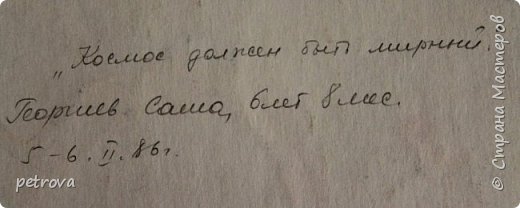 „Космос должен быть мирный.
Георгиев Саша, 6 лет 8 мес.
5-6.II.86г.
petrova
© Страна Мастеров